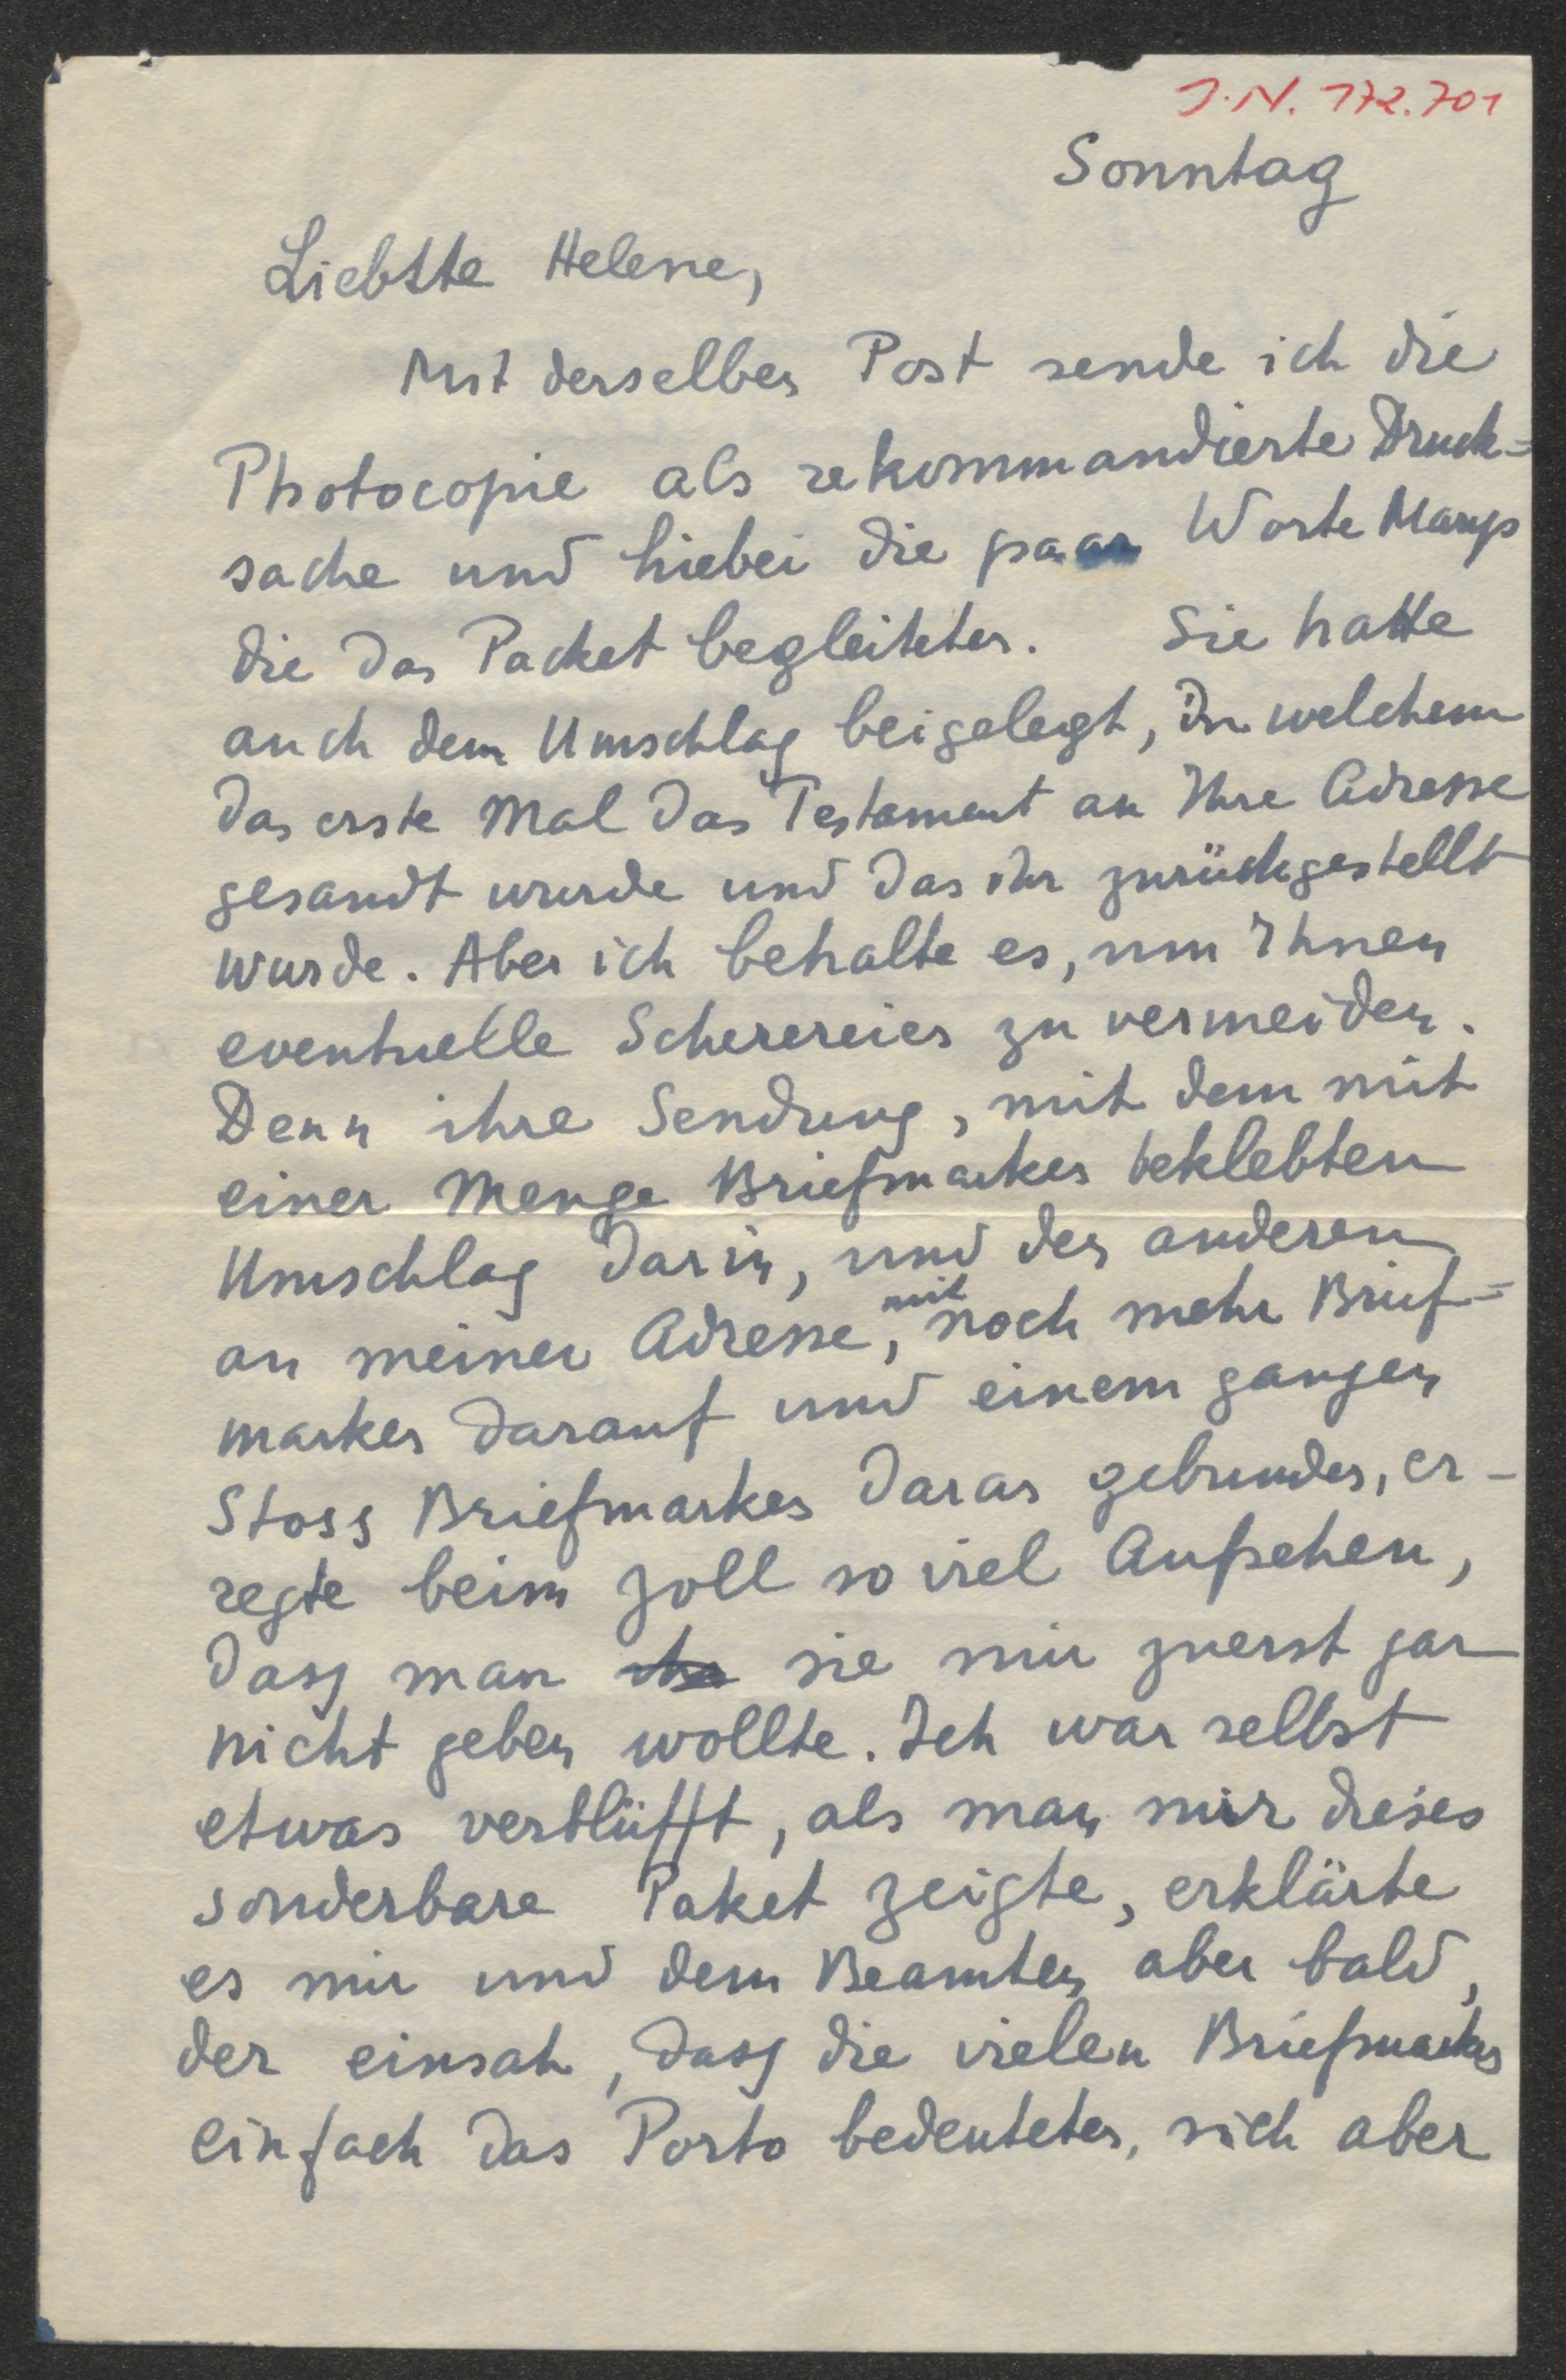 J.N. 172.701
Sonntag
Liebste Helene,
Mit derselben Post sende ich die
Photocopie als rekommandierte Druck=
sache und hiebei die paar Worte Marys
die das Packet begleiteten. Sie hatte
auch dem Umschlag beigelegt, in welchem
das erste Mal das Testament an Ihre Adresse
gesandt wurde und das ihr zurückgestellt
wurde. Aber ich behalte es, um Ihnen
eventuelle Scherereien zu vermeiden.
Denn ihre Sendung, mit dem mit
einer Menge Briefmarken beklebten
Umschlag darin, und den anderen
an meiner Adresse, mit noch mehr Brief=
marken darauf und einem ganzen
Stoss Briefmarken daran gebunden, er-
regte beim Zoll so viel Aufsehen,
dass man sie mir zuerst gar
nicht geben wollte. Ich war selbst
etwas verblüfft, als man mir dieses
sonderbare Paket zeigte, erklärte
es mir und dem Beamten aber bald,
der einsah, dass die vielen Briefmarken
einfach das Porto bedeuteten, sich aber